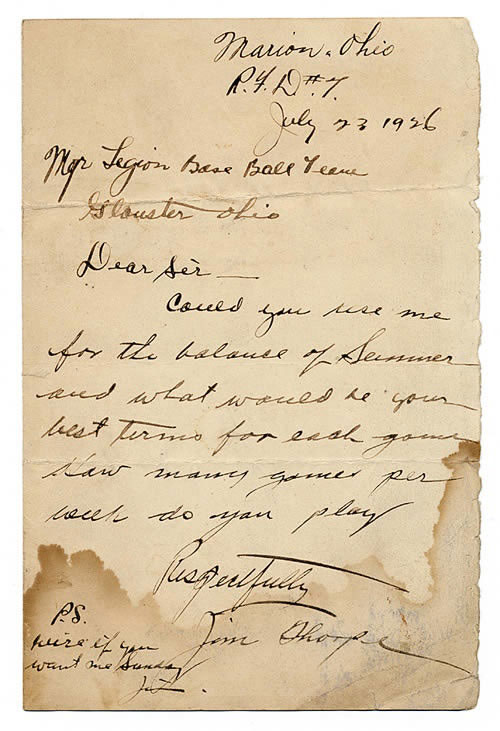 Marion, Ohio
R.F.D #7.
July 23 1926
Mgr Legion Base Ball Team
Glouster Ohio
Dear Sir —
Could you use me
for the balance of Summer
and what would be your
best terms for each game
How many games per
week do you play
Respectfully
Jim Thorpe
P.S.
wire if you
want me Sunday
J.T.